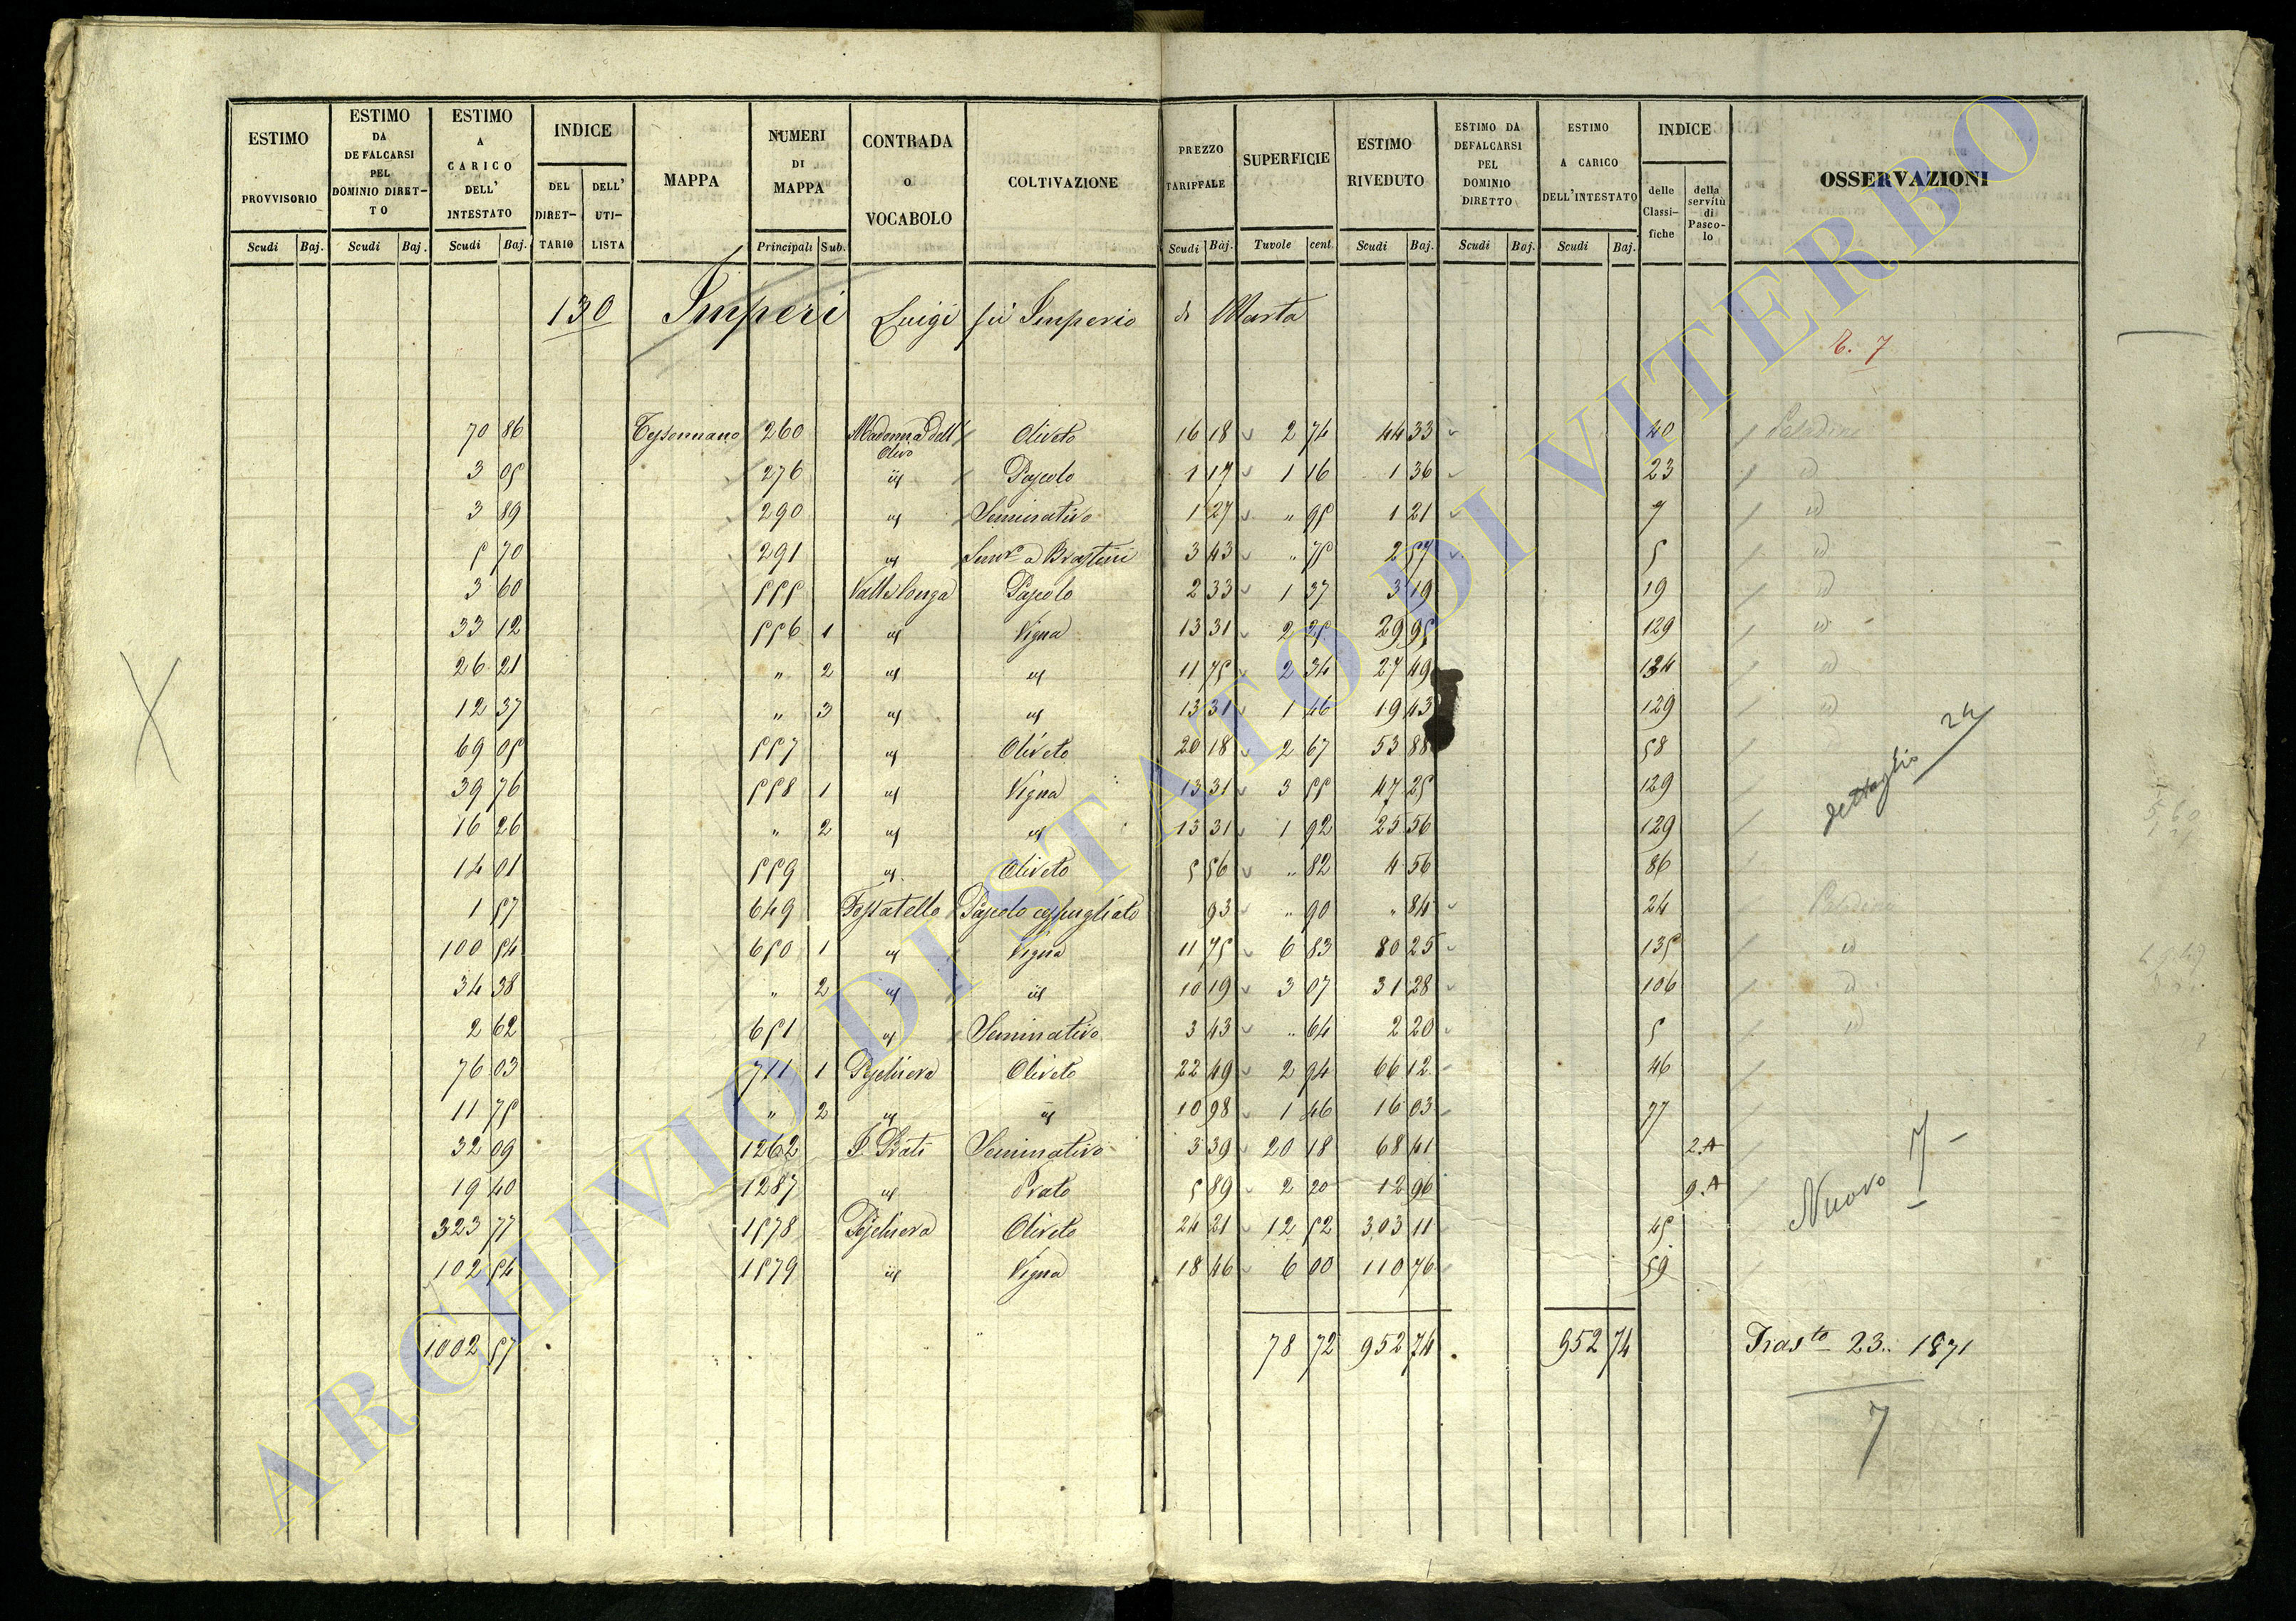 ESTIMO PROVVISORIO Scudi Baj. ESTIMO DA DEFALCARSI PEL DOMINIO DIRETTO Scudi Baj. ESTIMO A CARICO DELL' INTESTATO Scudi Baj. INDICE DEL DIRETTARIO DELL' UTILISTA MAPPA NUMERI DI MAPPA Principali Sub. CONTRADA O VOCABOLO COLTIVAZIONE PREZZO TARIFFALE Scudi Baj. SUPERFICIE Tavole cent. ESTIMO RIVEDUTO Scudi Baj. ESTIMO DA DEFALCARSI PEL DOMINIO DIRETTO Scudi Baj. ESTIMO A CARICO DELL'INTESTATO Scudi Baj. INDICE delle Classifiche della servitù di Pascolo OSSERVAZIONI
130 Imperi Luigi fù Imperio di Marta
7
70 86 Tessennano 260 Madonna dell' Olivo Oliveto 16 18 2 74 44 33 40 Paladine
3 05 276 id Pascolo 1 17 1 16 1 36 23 id
3 89 290 id Seminativo 1 27 " 95 1 21 7 id
5 70 291 id 3 43 " 75 2 57 5 id
3 60 555 Valle longa Pascolo 2 33 1 37 3 19 19 id
33 12 556 1 id Vigna 13 31 2 25 29 95 129 id
26 21 " 2 id id 11 75 2 34 27 49 134 id
12 37 " 3 id id 13 31 1 46 19 43 129 id
69 05 557 id Oliveto 20 18 2 67 53 88 58
39 76 558 1 id Vigna 13 31 3 55 47 25 129
dettaglio 24
16 26 " 2 id id 13 31 1 92 25 56 129
14 01 559 id Oliveto 5 56 " 82 4 56 86
1 57 649 Fossatello Pascolo cespugliato 93 " 90 " 84 24 Paladine
100 54 650 1 id Vigna 11 75 6 83 80 25 135 id
34 38 " 2 id id 10 19 3 07 31 28 106 id
2 62 651 id Seminativo 3 43 " 64 2 20 5 id
76 03 711 1 Peschiera Oliveto 22 49 2 94 66 12 46
11 75 " 2 id id 10 98 1 46 16 03 77
32 09 1262 P. Prati Seminativo 3 39 20 18 68 41 2.A
19 40 1287 id Prato 5 89 2 20 12 96 9.A
Nuovo 7
323 77 1578 Peschiera Oliveto 24 21 12 52 303 11 45
102 54 1579 id Vigna 18 46 6 00 110 76 59
1002 57 78 72 952 74 952 74 Trasto 23. 1871
7
ARCHIVIO DI STATO DI VITERBO